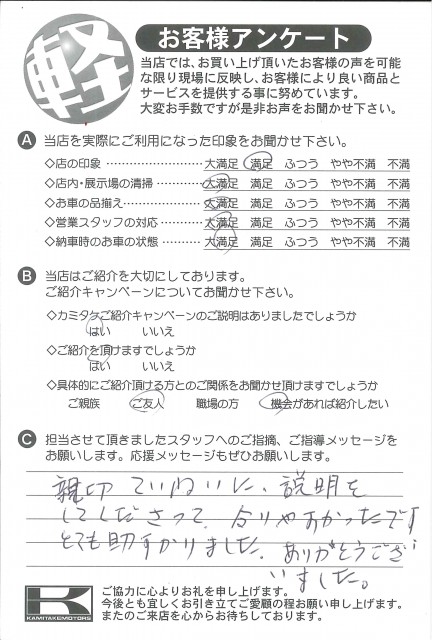 軽
お客様アンケート
当店では、お買い上げ頂いたお客様の声を可能
な限り現場に反映し、お客様により良い商品と
サービスを提供する事に努めています。
大変お手数ですが是非お声をお聞かせ下さい。
A 当店を実際にご利用になった印象をお聞かせ下さい。
◇店の印象 ………………… 大満足 満足 ふつう やや不満 不満
◇店内・展示場の清掃 ………… 大満足 満足 ふつう やや不満 不満
◇お車の品揃え ……………… 大満足 満足 ふつう やや不満 不満
◇営業スタッフの対応 ………… 大満足 満足 ふつう やや不満 不満
◇納車時のお車の状態 ………… 大満足 満足 ふつう やや不満 不満
B 当店はご紹介を大切にしております。
ご紹介キャンペーンについてお聞かせ下さい。
◇カミタケご紹介キャンペーンのご説明はありましたでしょうか
はい いいえ
◇ご紹介を頂けますでしょうか
はい いいえ
◇具体的にご紹介頂ける方とのご関係をお聞かせ頂けますでしょうか
ご親族 ご友人 職場の方 機会があれば紹介したい
C 担当させて頂きましたスタッフへのご指摘、ご指導メッセージを
お願いします。応援メッセージもぜひお願いします。
親切ていねいに、説明を
してくださって、分りやすかったです
とても助かりました。ありがとうござ
いました。
K
KAMITAKEMOTORS
ご協力に心よりお礼を申し上げます。
今後とも宜しくお引き立てご愛顧の程お願い申し上げます。
またのご来店を心からお待ちしております。